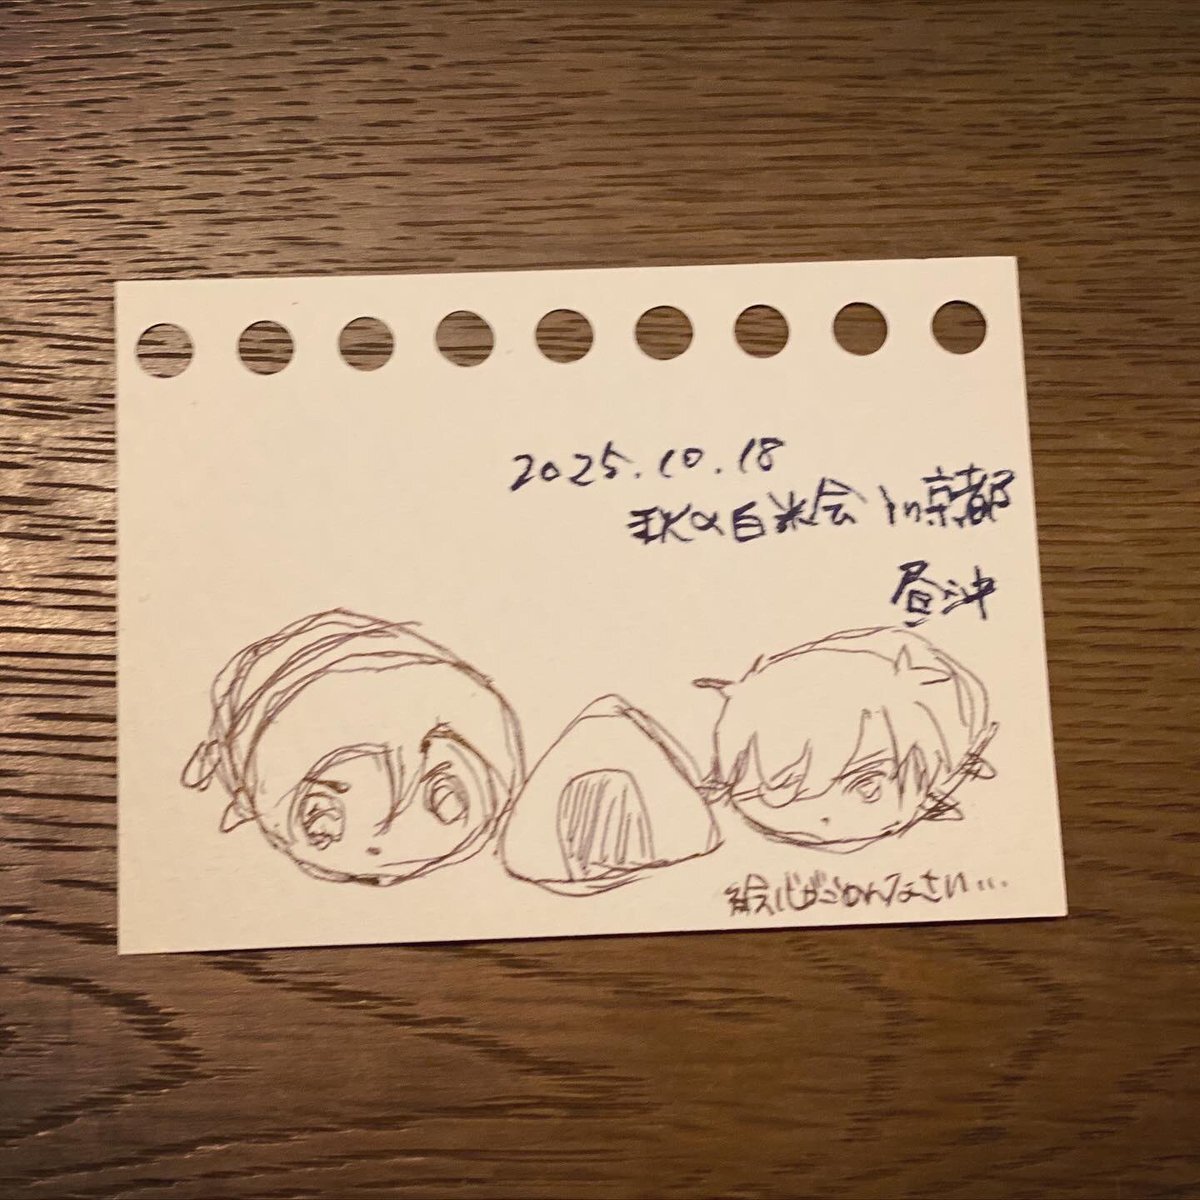 2025.10.18
秋の白米会 in 京都
昼沖
絵心がごめんなさい...